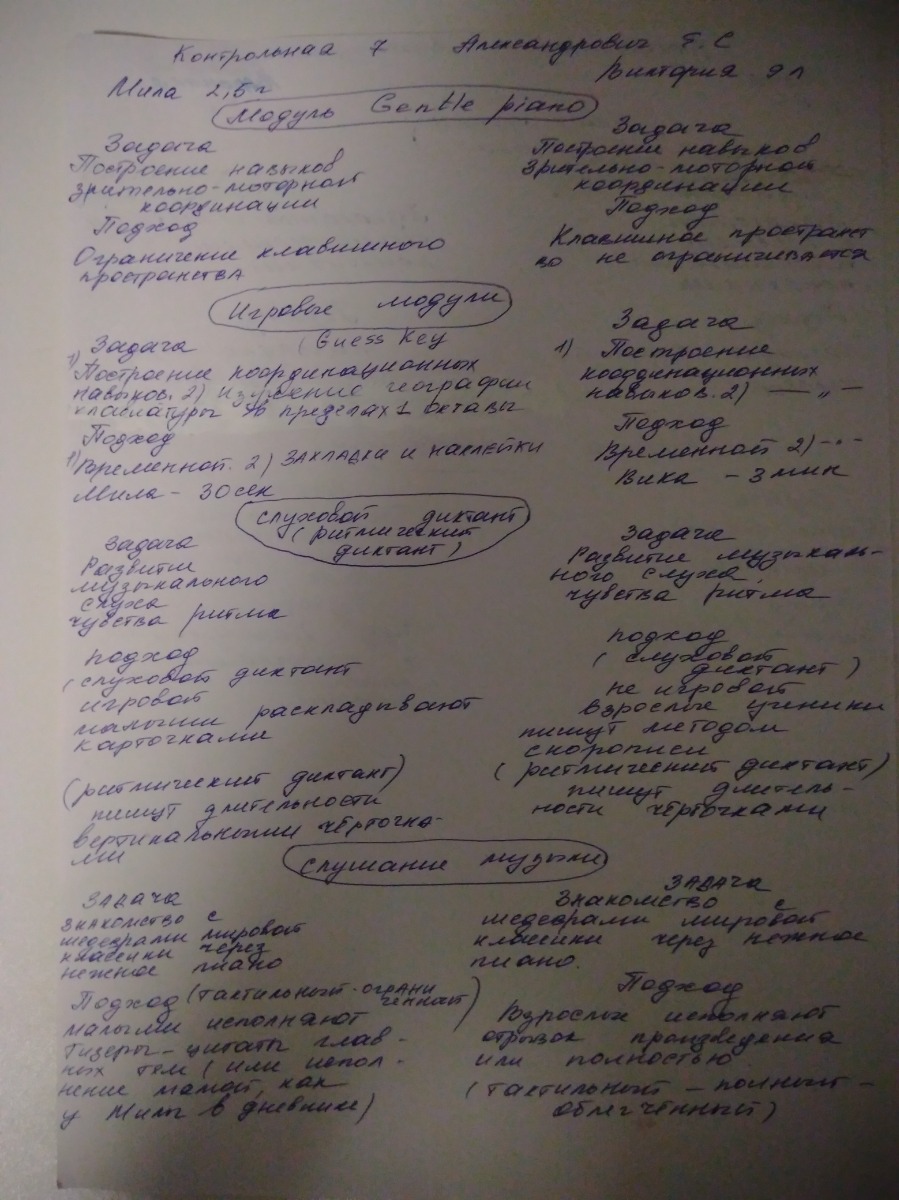 Контрольная 7 Александрович Г. С
Мила 2,5 г
Виктория 9 л
Модуль Gentle piano
Задача
Построение навыков
зрительно-моторной
координации
Подход
Ограничение клавишного
пространства
Задача
Построение навыков
зрительно-моторной
координации
Подход
Клавишное пространст
во не ограничивается
Игровые модули
(Guess Key
Задача
1) Построение координационных
навыков. 2) изучение географии
клавиатуры в пределах 1 октавы
Подход
1) Временной. 2) Закладки и наклейки
Мила – 30 сек
Задача
1) Построение
координационных
навыков. 2) — „ —
Подход
Временной 2) – „ –
Вика – 3 мин
Слуховой диктант
(ритмический
диктант)
Задача
Развитие
музыкального
слуха
чувства ритма
подход
(слуховой диктант
игровой
малыши раскладывают
карточками
(ритмический диктант)
пишут длительности
вертикальными чёрточка-
ми
Задача
Развитие музыкаль-
ного слуха,
чувства ритма
подход
(слуховой
диктант)
не игровой
взрослые ученики
пишут методом
скорописи
(ритмический диктант)
пишут длитель-
ности чёрточками
Слушание музыки
Задача
Знакомство с
шедеврами мировой
классики через
нежное пиано
Подход (тактильный-ограни
ченный)
малыши исполняют
тизеры – цитаты глав-
ных тем (или испол-
нение мамой, как
у Милы в дневнике)
Задача
Знакомство с
шедеврами мировой
классики через нежное
пиано.
Подход
Взрослые исполняют
отрывок произведения
или полностью
(тактильный – полный –
облегчённый)